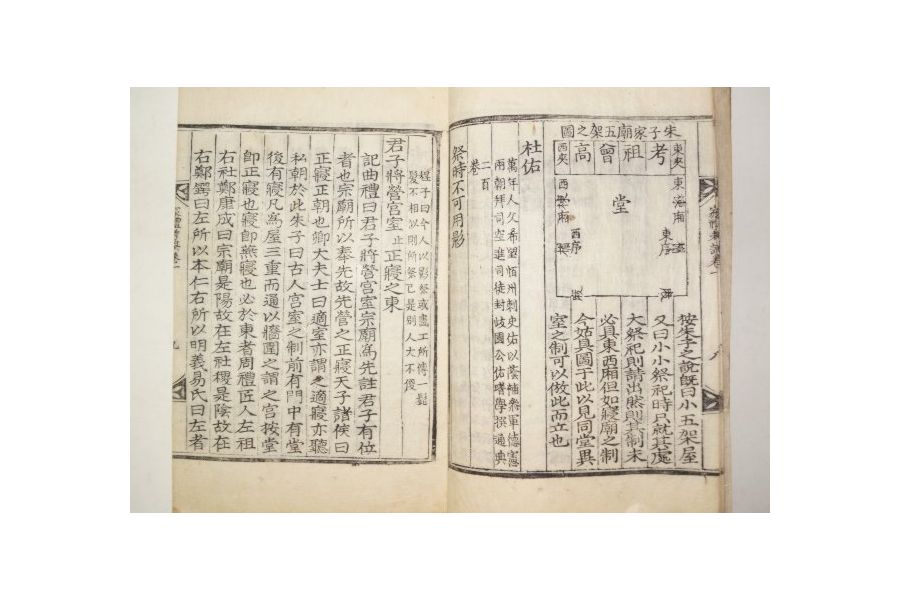 朱子家廟五架之圖
東夾
考
祖
曾
高
西夾
堂
東序
西序
按朱子之說旣曰小五架屋
又曰小小祭祀時只就其處
大祭祀則請出然則其制未
必具東西廂但如寢廟之制
今姑具圖于此以見同堂異
室之制可以倣此而立也
杜佑
萬年人父希望恒州刺史佑以蔭補參軍德憲
兩朝拜司空進司徒封岐國公佑嗜學撰通典
二百
卷
祭時不可用影
程子曰今人以影祭或畫工所傳一髭
髮不相似則所祭已是別人大不便
君子將營宮室 止 正寢之東
記曲禮曰君子將營宮室宗廟爲先註君子有位
者也宗廟所以奉先故先營之正寢天子諸侯曰
正寢正朝也卿大夫士曰適室亦謂之適寢亦聽
私朝於此朱子曰古人宮室之制前有門中有堂
後有寢凡爲屋三重而通以牆圍之謂之宮按堂
卽正寢也寢卽燕寢也必於東者周禮匠人左祖
右社鄭康成曰宗廟是陽故在左社稷是陰故在
右鄭鍔曰左所以本仁右所以明義易氏曰左者
九